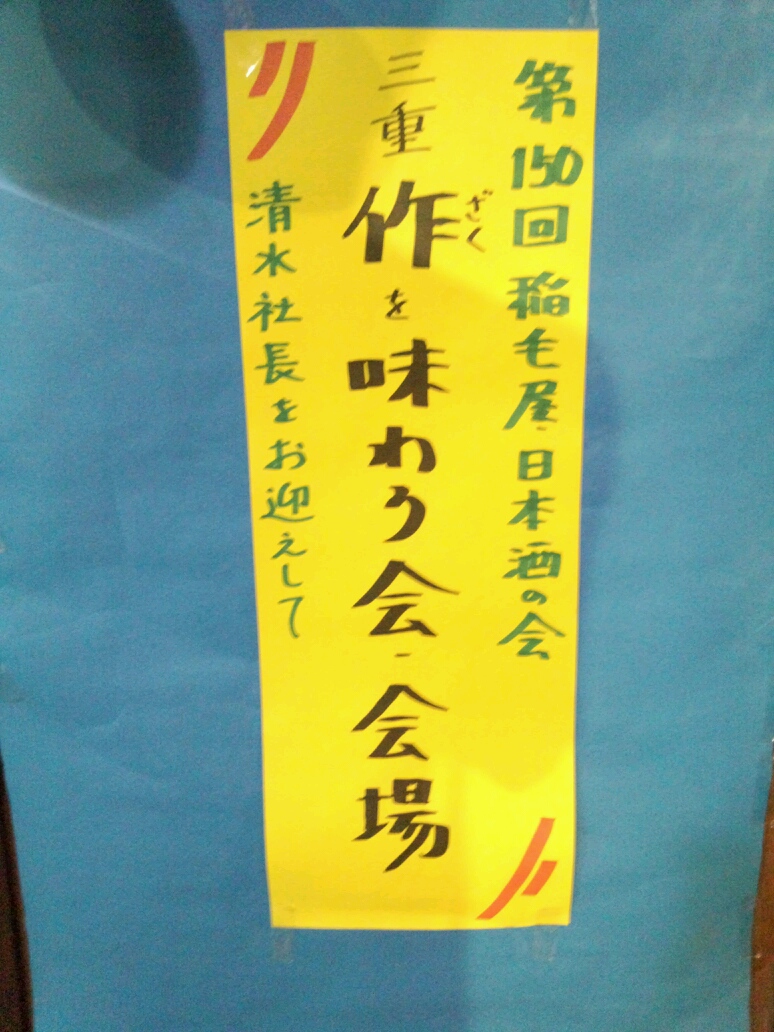 第150回 稲毛屋・日本酒の会
三重 作を味わう会・会場
ざく
清水社長をお迎えして